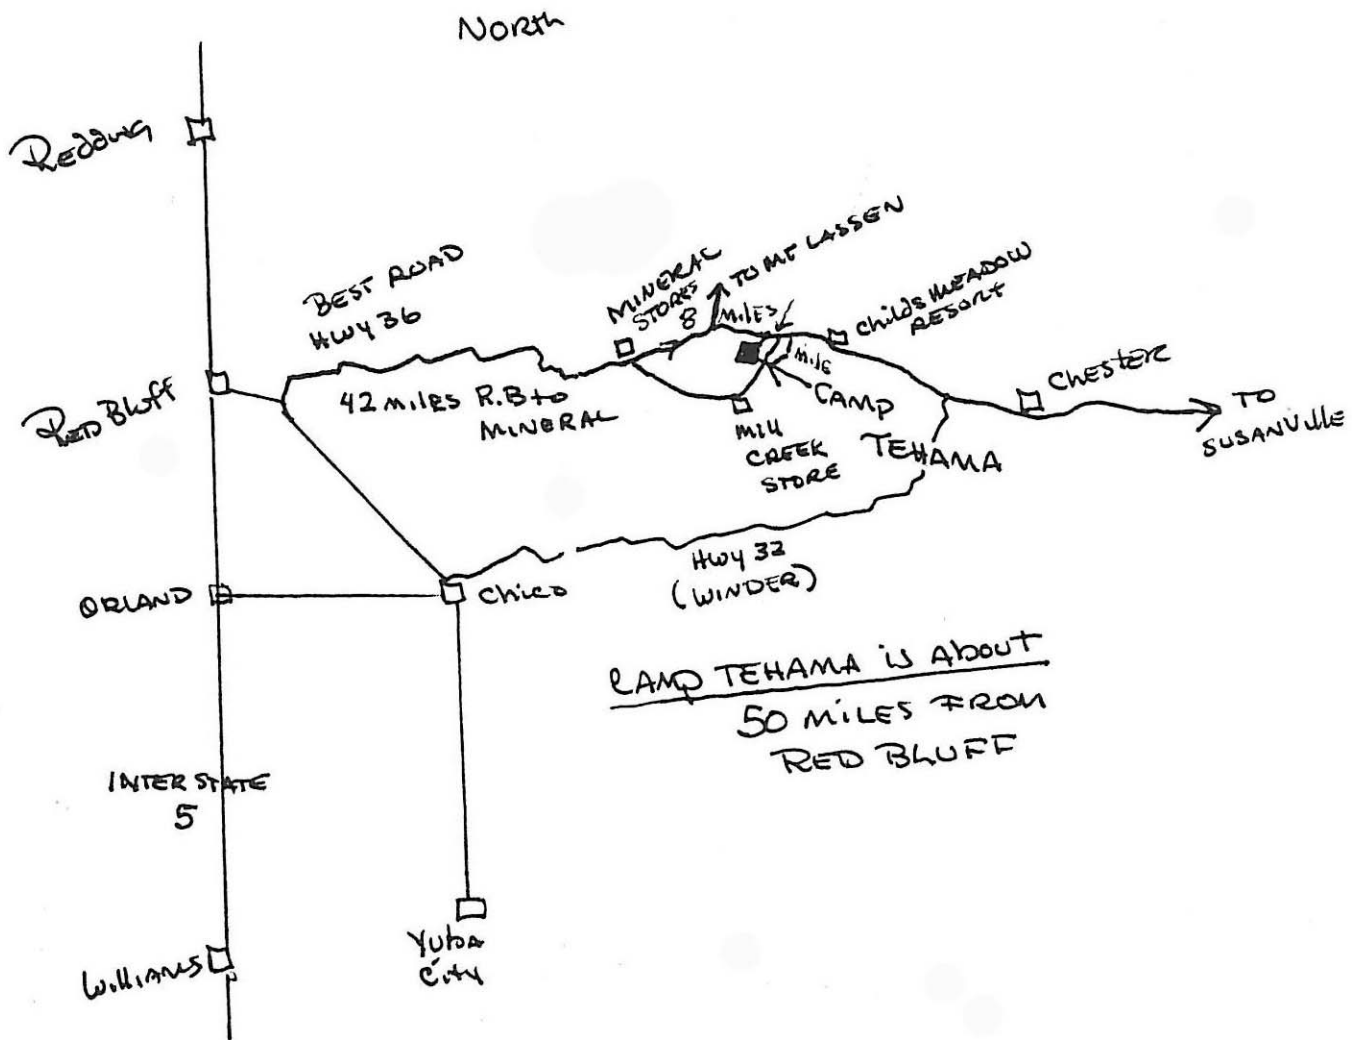 North
Redding
BEST ROAD
HWY 36
MINERAL
STORES
TO MT LASSEN
8 MILES
Childs MEADOW
RESORT
1 MILE
CAMP
TEHAMA
CHESTER
TO
SUSANVILLE
Red Bluff
42 MILES R.B to
MINERAL
Mill
CREEK
STORE
HWY 32
(WINDER)
ORLAND
Chico
CAMP TEHAMA is About
50 MILES FROM
RED BLUFF
INTERSTATE
5
Yuba
City
Williams